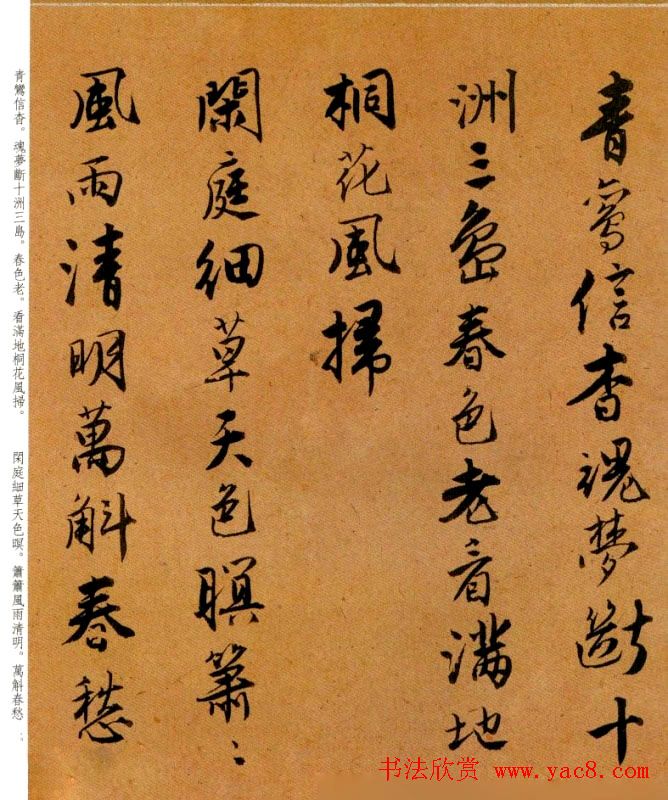 青鸞信杳魂夢斷十
洲三島春色老看滿地
桐花風掃
閑庭細草天色暝簫〻
風雨清明萬斛春愁
青鸞信杳。魂夢斷十洲三島。春色老。看滿地桐花風掃。
閑庭細草天色暝。簫簫風雨清明。萬斛春愁
书法欣赏 www.yac8.com